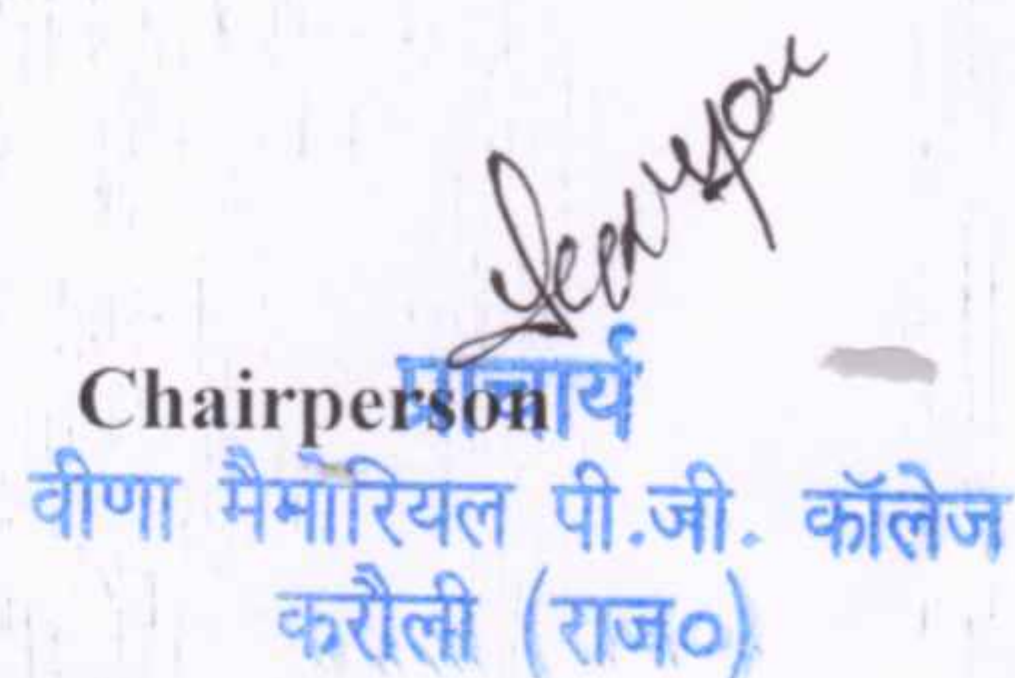 Chairperson प्राचार्य
वीणा मैमोरियल पी.जी. कॉलेज
करौली (राज०)